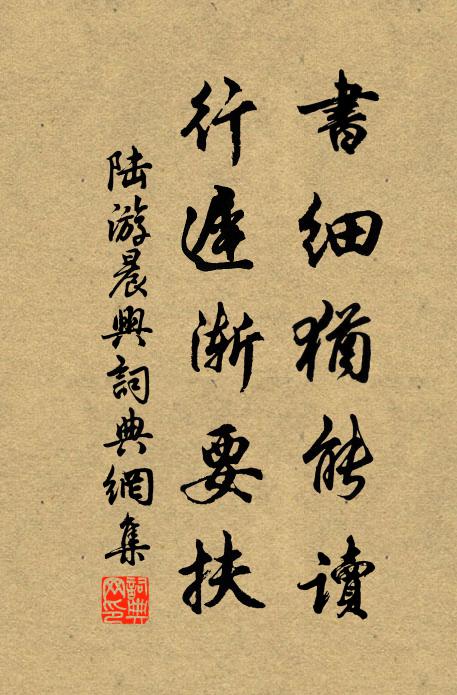 書細猶能讀
行遲漸要扶
陆游晨興詞典網集
詞典
网印